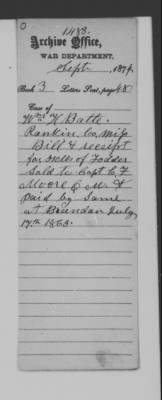 O
1483.
Archive Office,
WAR DEPARTMENT,
Sept 1874.
Book 3 Letters Sent, page 48
Case of
Wm H Batte
Rankin Co Miss
Bill & receipt
for of Fodder
Sold to Capt C. F
Moore Q M. &
paid by Same
at Brandon July
17th 1863.